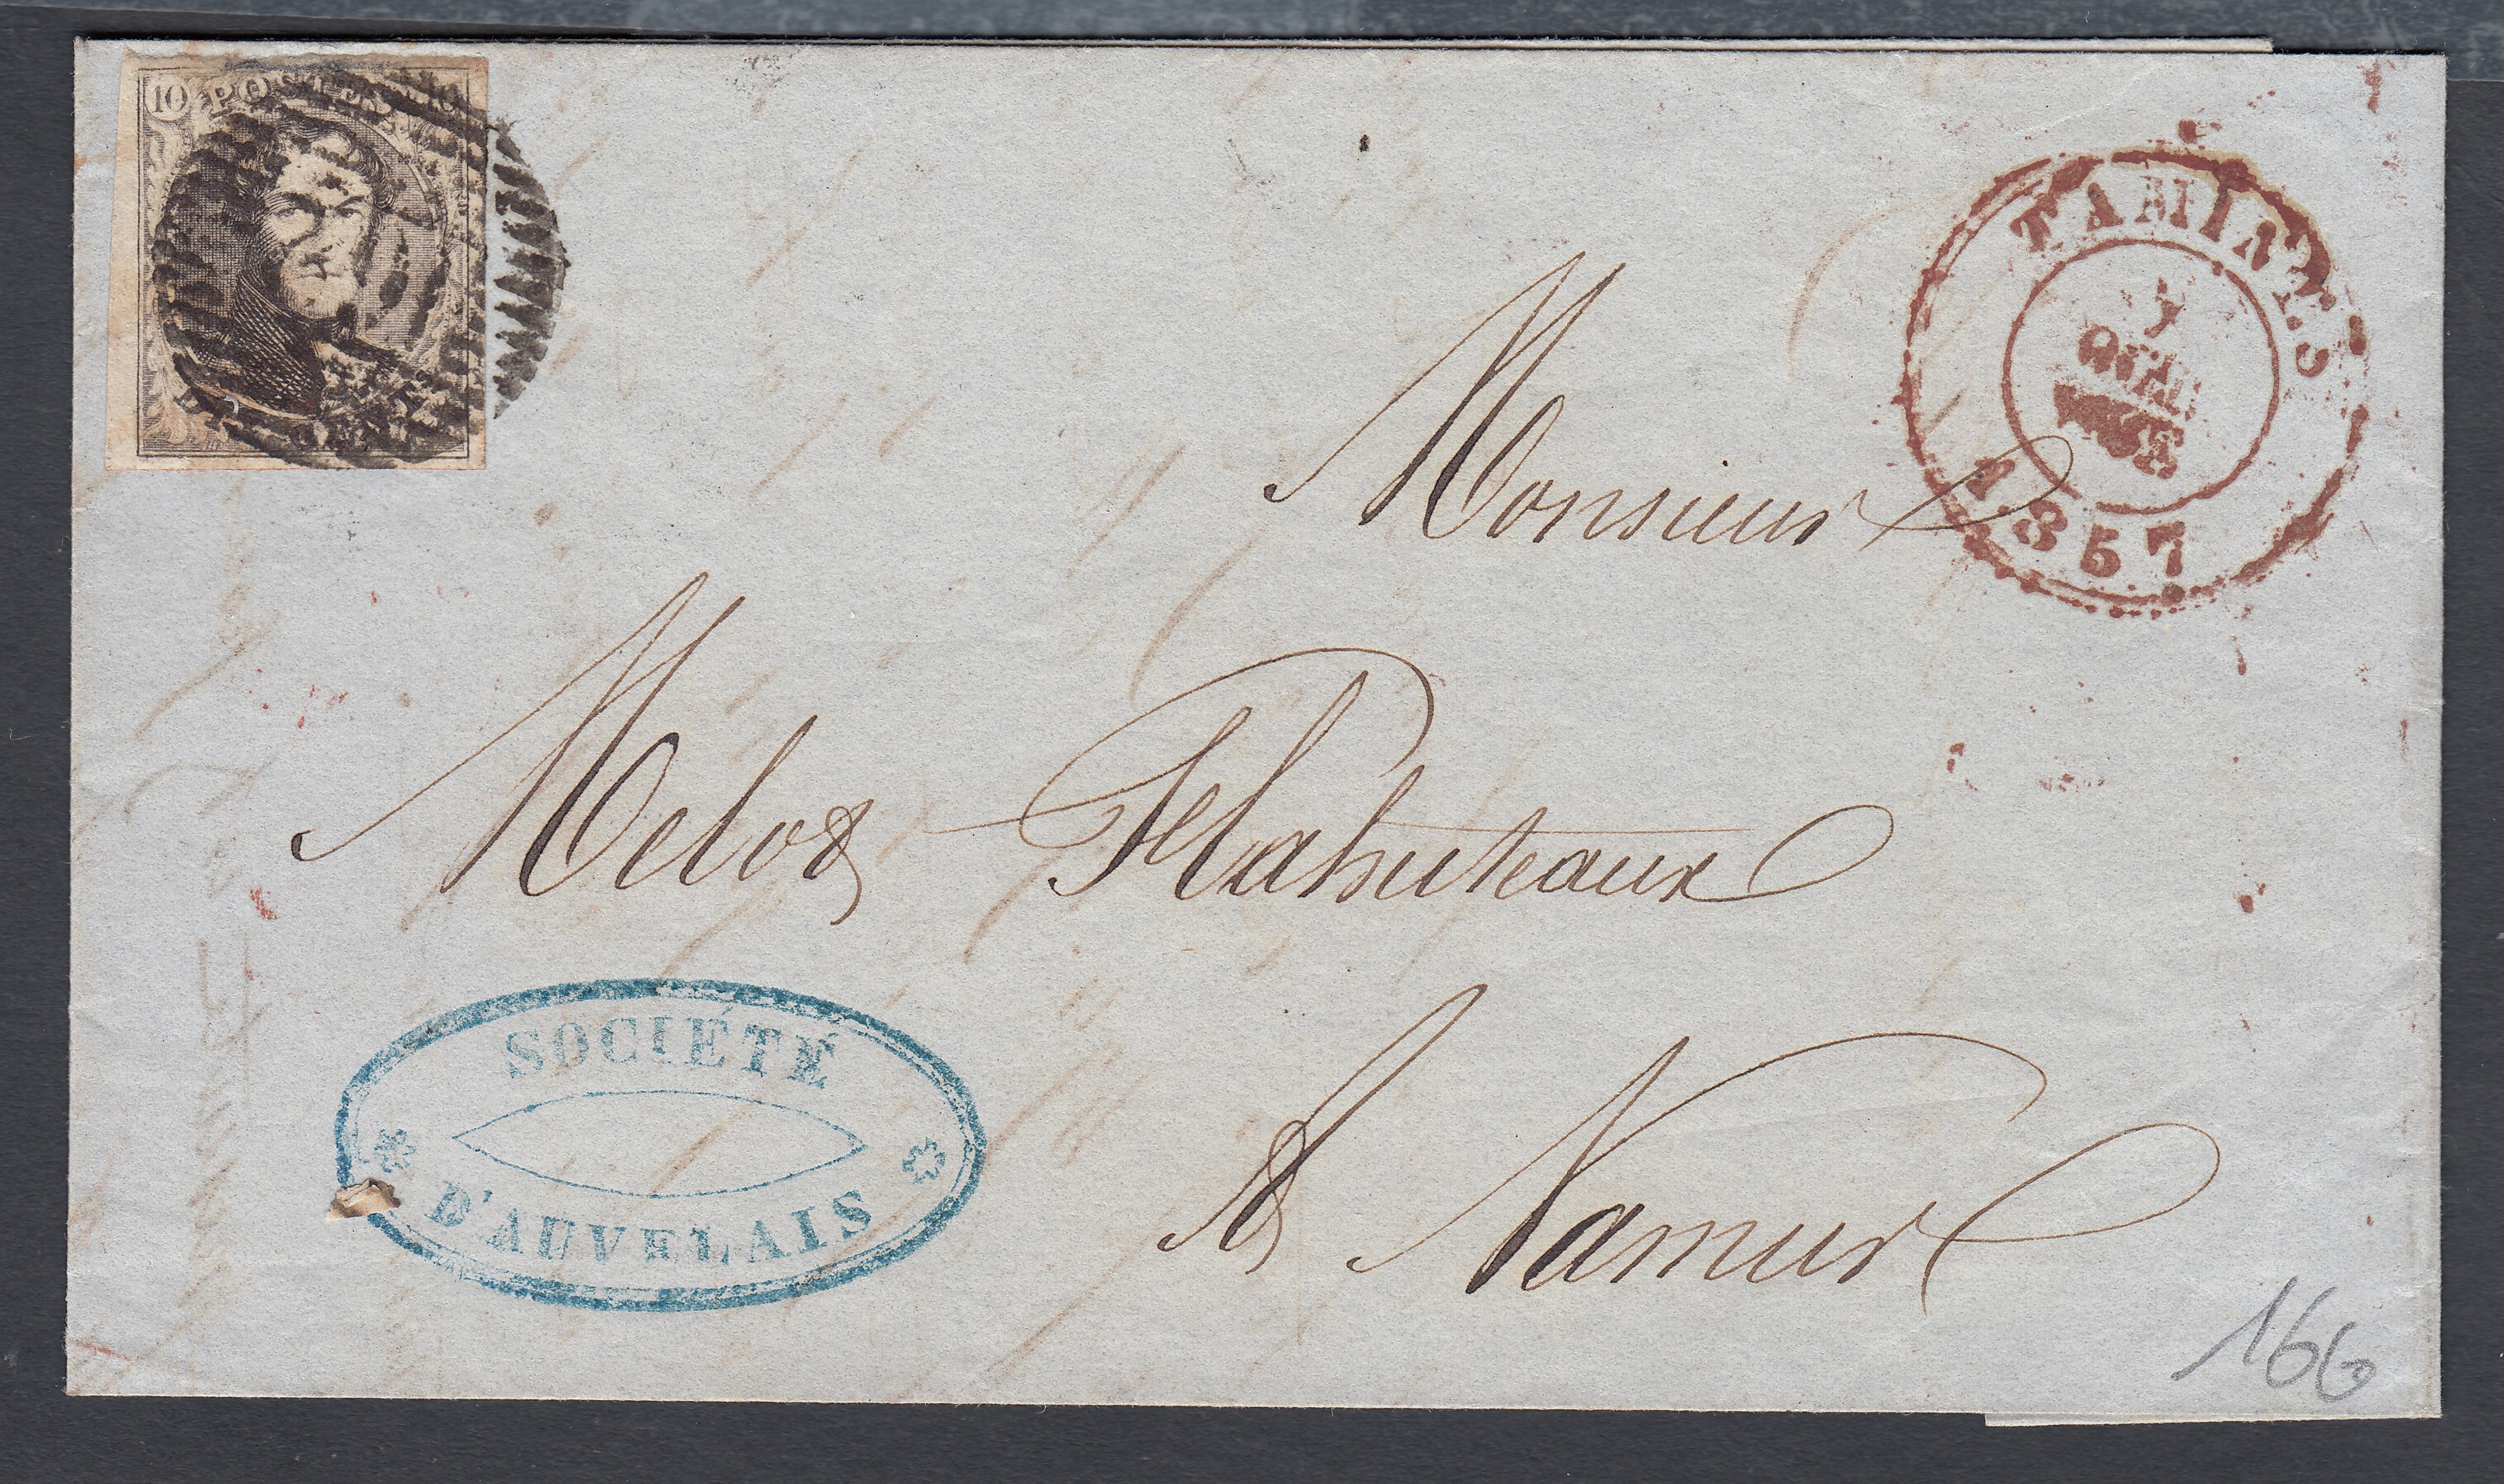 10 POSTES 10
TAMINES
1857
Monsieur
Melot
à Namur
SOCIÉTÉ
D'AUVELAIS
166